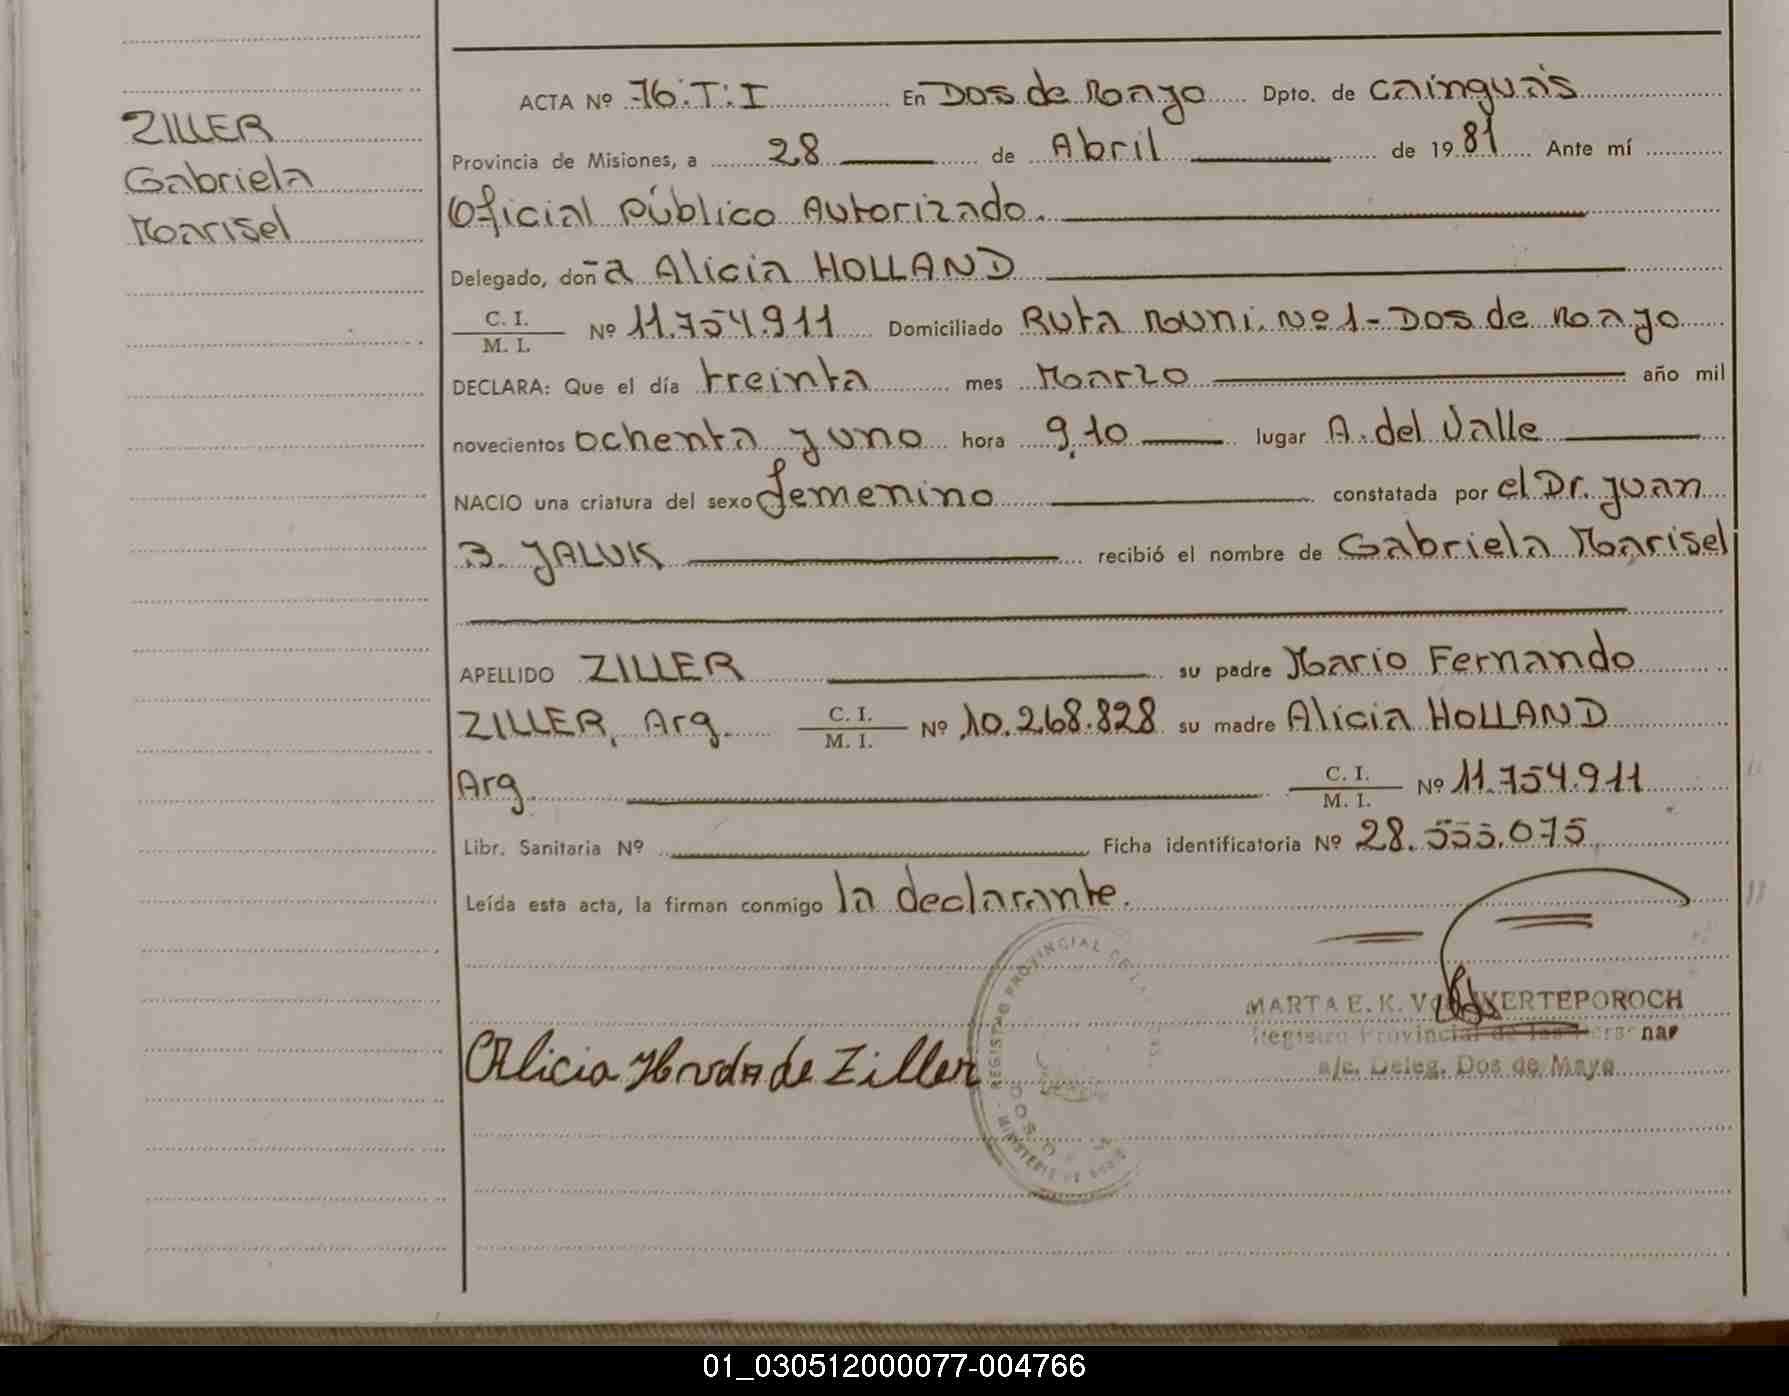 ZILLER
Gabriela
Marisel
ACTA Nº 76.T:I En Dos de Mayo Dpto. de Cainguás
Provincia de Misiones, a 28 de Abril de 1981 Ante mí
Oficial Público Autorizado.
Delegado, doña Alicia HOLLAND
C. I.
M. I. Nº 11.754.911 Domiciliado Ruta Muni. Nº 1- Dos de Mayo
DECLARA: Que el día treinta mes Marzo año mil
novecientos ochenta y uno hora 9,10 lugar A. del Valle
NACIO una criatura del sexo femenino constatada por el Dr. Juan
B. JALUK recibió el nombre de Gabriela Marisel
APELLIDO ZILLER su padre Mario Fernando
ZILLER, Arg. C. I. M. I. Nº 10.268.828 su madre Alicia HOLLAND
Arg. C. I. M. I. Nº 11.754.911
Libr. Sanitaria Nº Ficha identificatoria Nº 28.555.075
Leída esta acta, la firman conmigo la declarante.
REGISTRO PROVINCIAL DE LA
MARTA E. K. WERTEPOROCH
Registro Provincial de las Personas
a/c. Deleg. Dos de Mayo
Alicia de Ziller
01_030512000077-004766